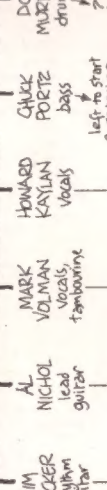 IM
CKER
thm
itar
AL
NICHOL
lead
guitar
MARK
VOLMAN
vocals,
tambourine
HOWARD
KAYLAN
vocals
CHUCK
PORTZ
bass
left to start
DO
MUR
dru